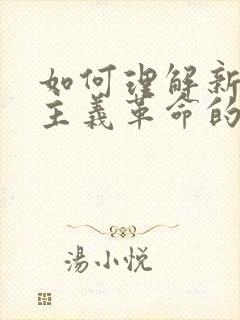 如何理解新
主義革命的
湯小悦